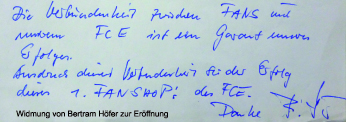 Die Verbundenheit zwischen FANS und
unserem FCE ist ein Garant unserer
Erfolge.
Ausdruck dieser Verbundenheit sei der Erfolg
dieses 1. FANSHOP! des FCE.
Danke
Widmung von Bertram Höfer zur Eröffnung